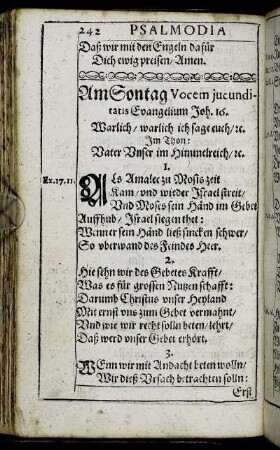 242 PSALMODIA
Daß wir mit den Engeln dafür
Dich ewig preisen/ Amen.
Am Sontag Vocem jucundi-
tatis Evangelium Joh. 16.
Warlich/ warlich ich sage euch/ ꝛc.
Im Thon:
Vater Vnser im Himmelreich/ ꝛc.
1.
Ex. 17. 11. ALs Amalec zu Mosis zeit
Kam/ vnd wieder Israel streit/
Vnd Moses sein Händ im Gebet
Auffhub/ Israel siegen thet:
Wenn er sein Händ ließ sincken schwer/
So vberwand des Feindes Heer.
2.
Hie sehn wir des Gebetes Krafft/
Was es für grossen Nutzen schafft:
Darumb Christus vnser Heyland
Mit ernst vns zum Gebet vermahnt/
Vnd wie wir recht solln beten/ lehrt/
Daß werd vnser Gebet erhört.
3.
WEnn wir mit Andacht beten wolln/
Wir dieß Vrsach betrachten solln:
Erst